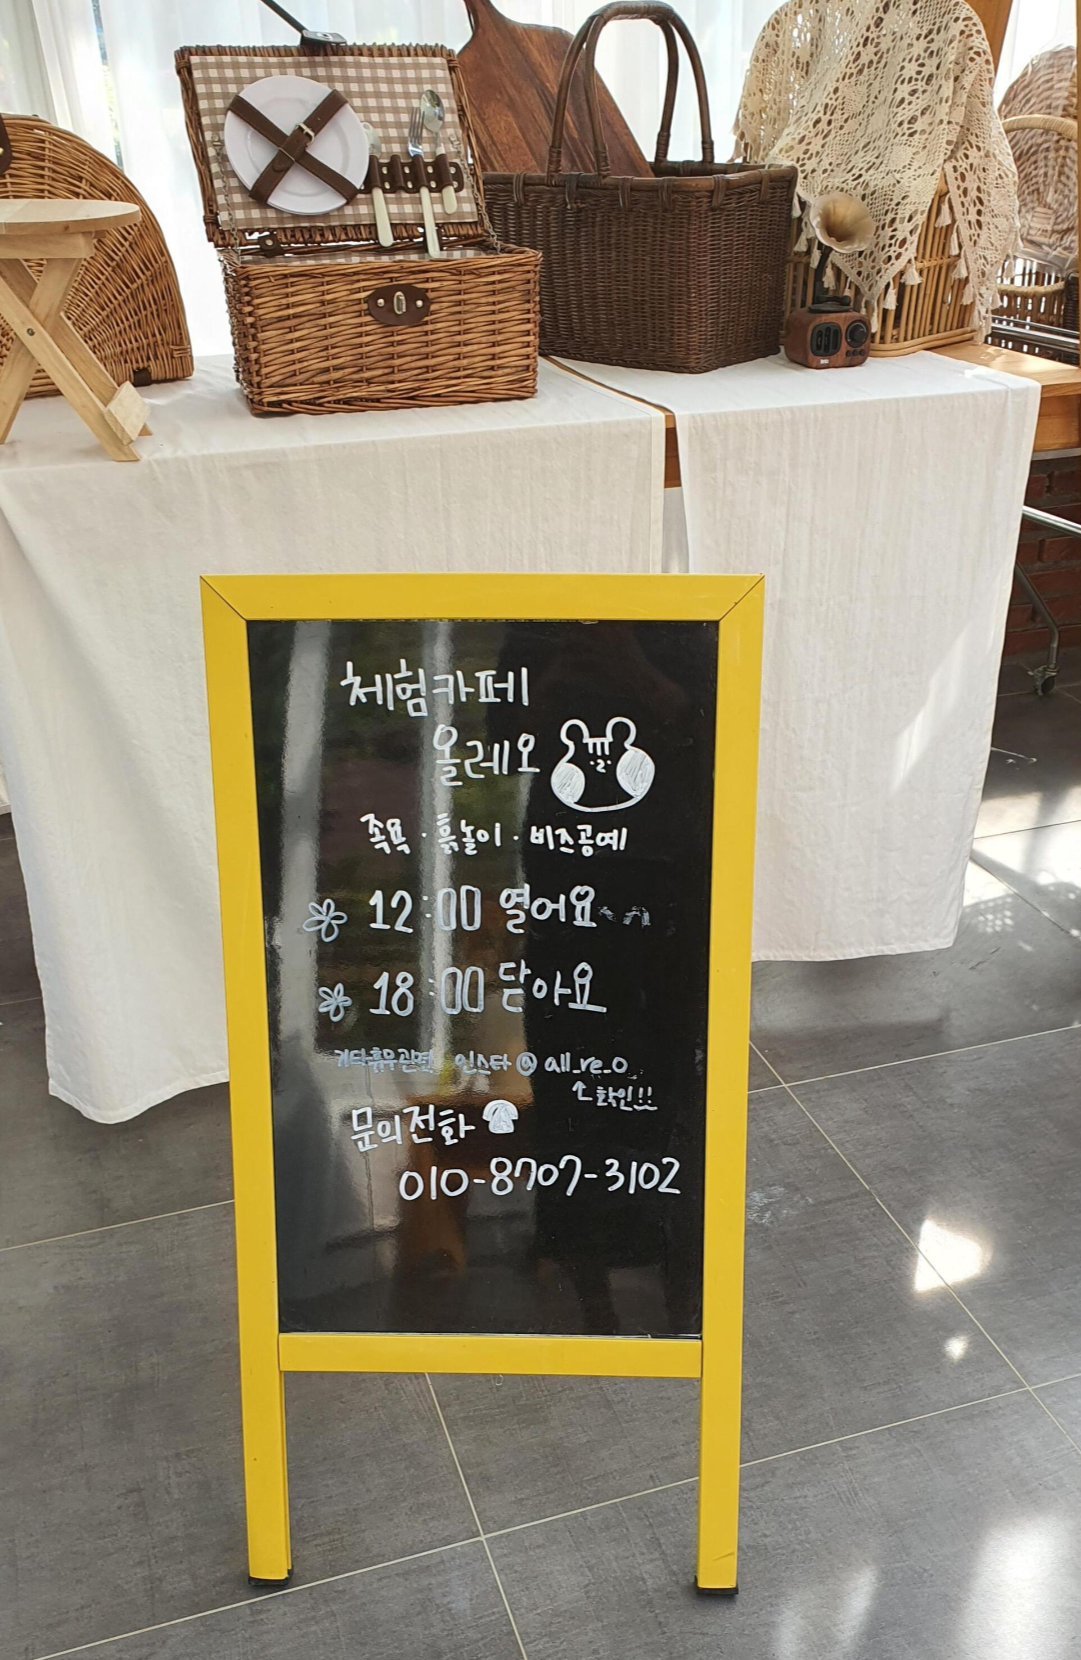 체험카페
올레오
족욕 · 흙놀이 · 비즈공예
12:00 열어요
18:00 닫아요
기타휴무관련 인스타@ all_re_o
↑확인!!
문의전화
010-8707-3102